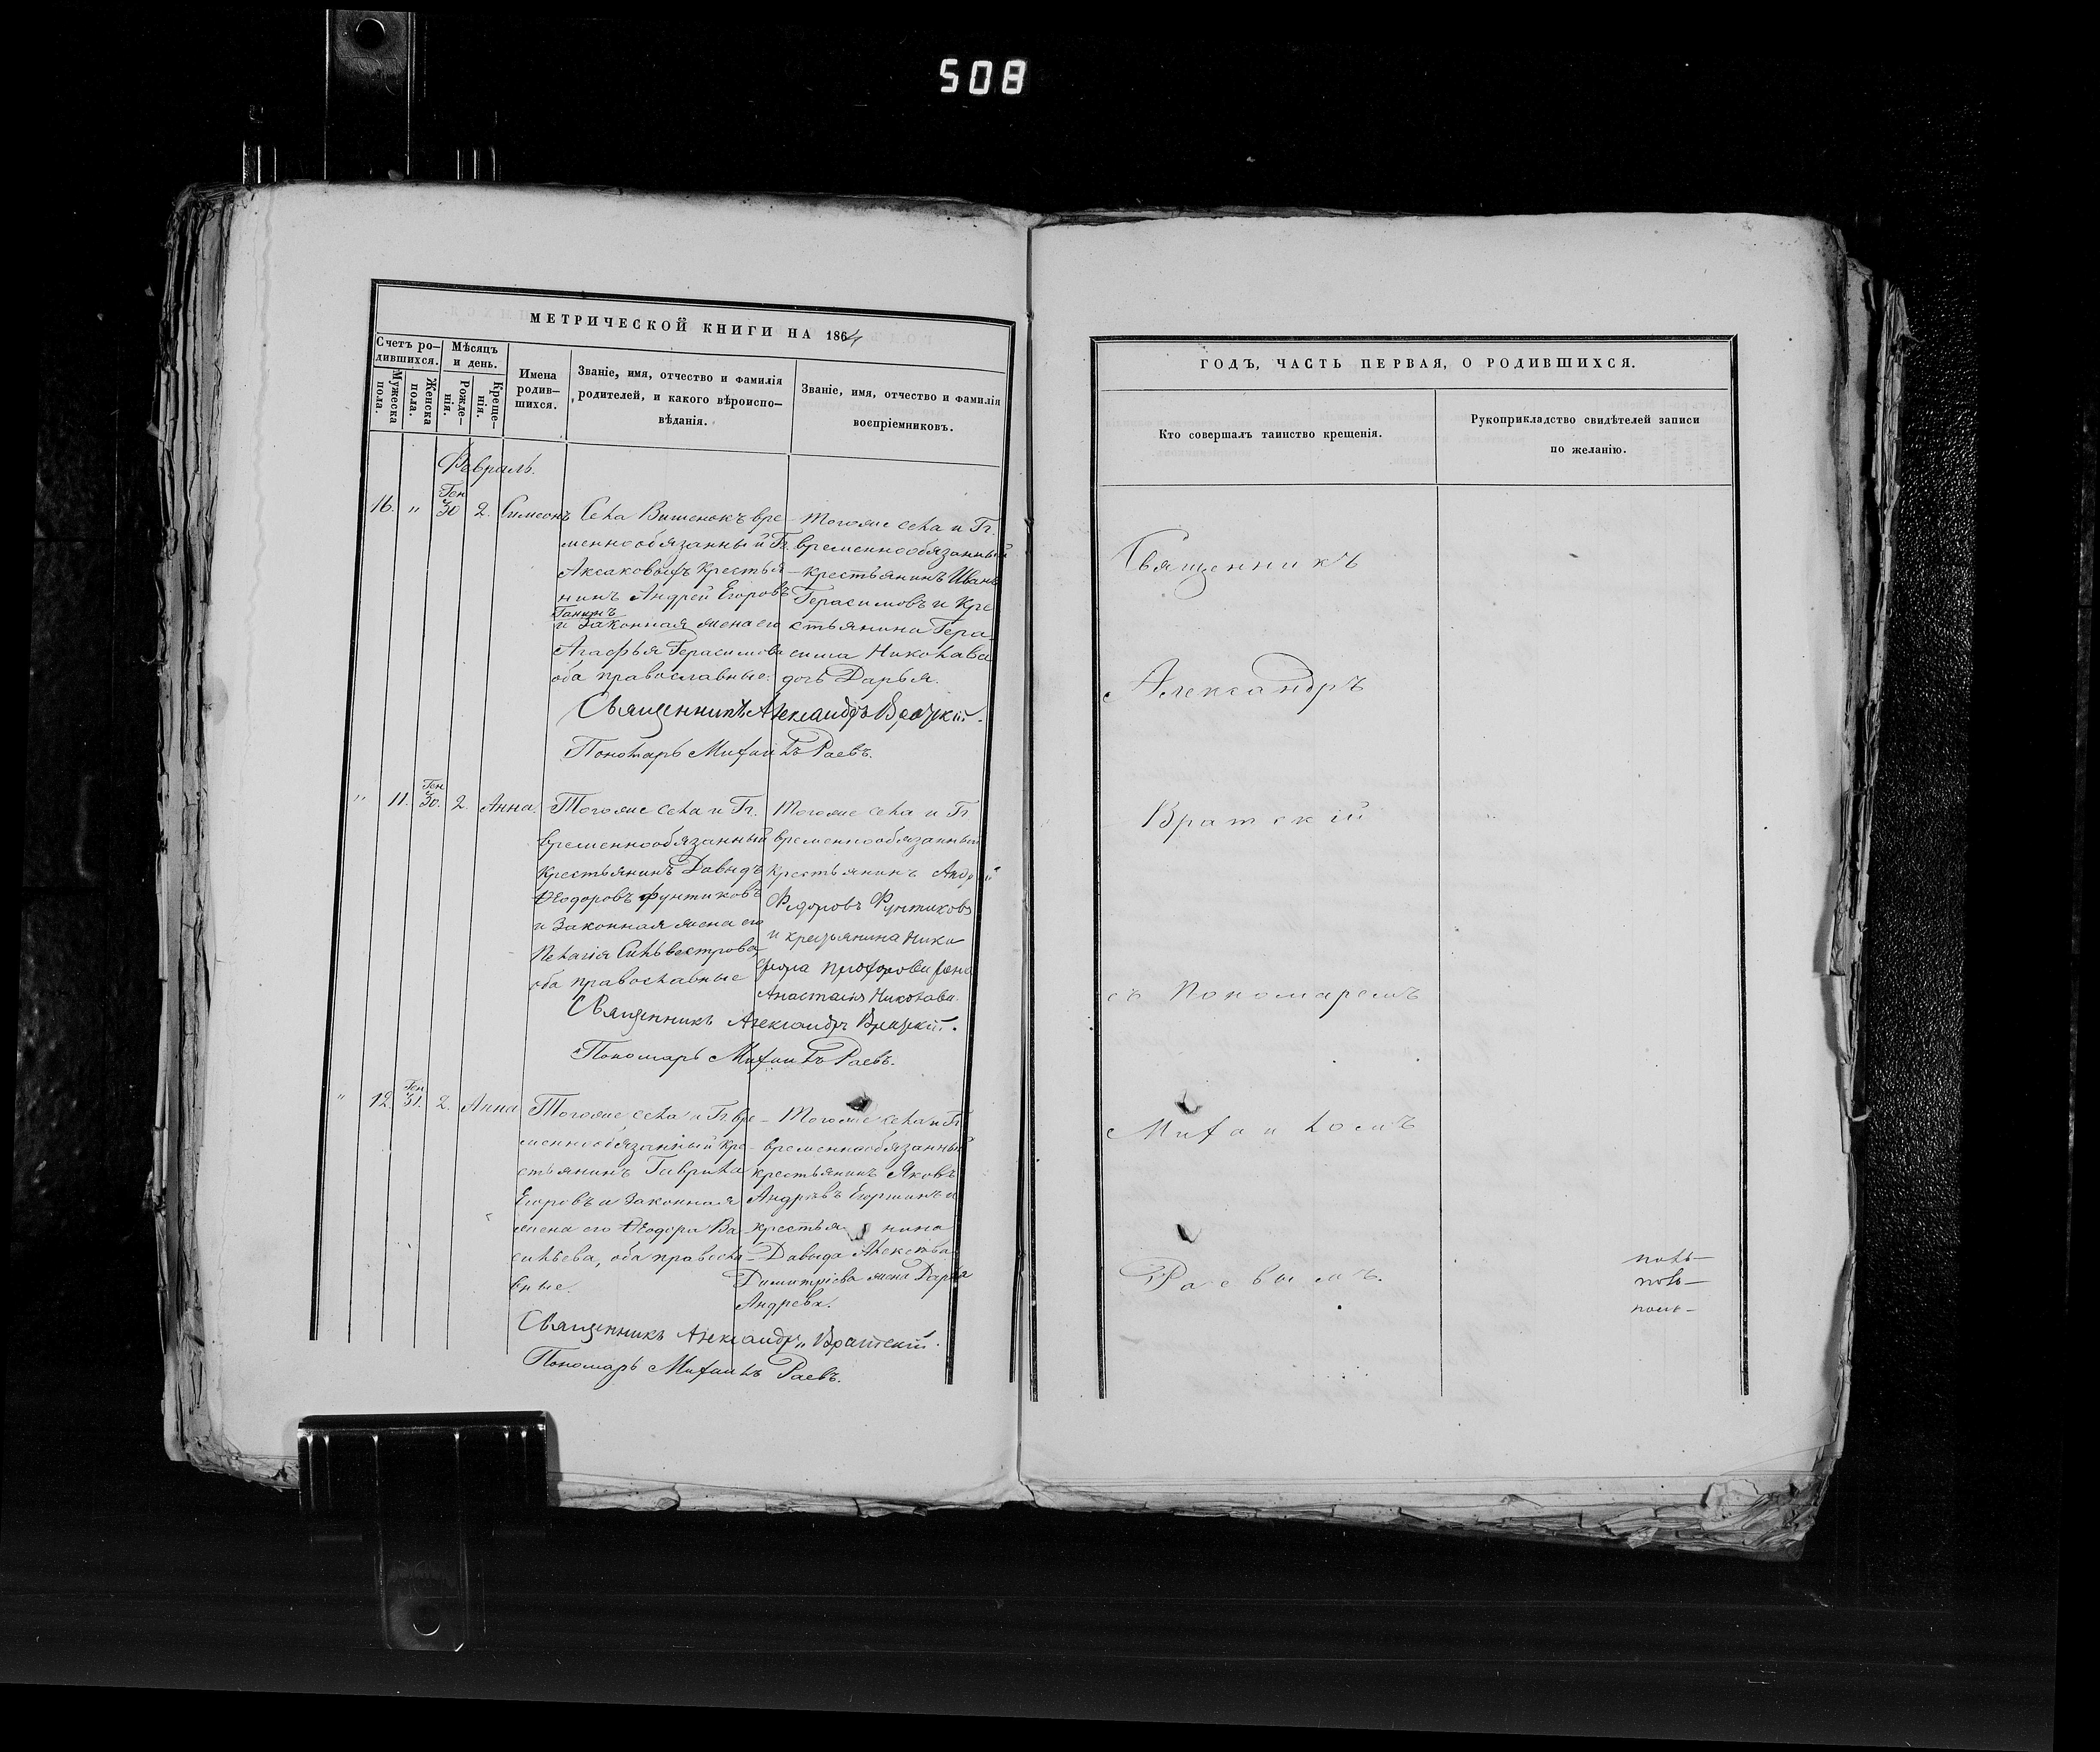 508
МЕТРИЧЕСКОЙ КНИГИ НА 1864
Счетъ ро-
дившихся.
Мужеска
пола.
Женска
пола.
Мѣсяцъ
и день.
Рожде-
нія.
Креще-
нія.
Имена
родив-
шихся.
Званіе, имя, отчество и фамилія
родителей, и какого вѣроиспо-
вѣданія.
Званіе, имя, отчество и фамилія
воспріемниковъ.
Февраль.
16. " Ген 30 2. Симеонъ
Села Вишенокъ вре-
меннообязанный Гг.
Аксаковыхъ крестья-
нинъ Андрей Егоровъ
Ганинъ
и законная жена его
Агафья Герасимова
оба православные.
Тогоже села и Гг.
временнообязанный
крестьянинъ Иванъ
Герасимовъ и кре-
стьянина Гера-
сима Николава
дочь Дарья.
Священникъ Александръ Вратскій.
Пономарь Михаилъ Раевъ.
" 11. Ген 30. 2. Анна.
Тогоже села и Гг.
временнообязанный
крестьянинъ Давыдъ
Ѳеодоровъ Фунтиковъ
и законная жена его
Пелагія Сильвестрова,
оба православные
Тогоже села и Гг.
временнообязанный
крестьянинъ Андрей
Федоровъ Фунтиковъ
и крестьянина Ники
фора Прохорова жена
Анастасія Николава.
Священникъ Александръ Вратскій.
Пономарь Михаилъ Раевъ.
" 12. Ген 31. 2. Анна
Тогоже села и Гг. вре-
меннообязанный кре-
стьянинъ Гаврила
Егоровъ и законная
жена его Ѳеодора Ва-
сильева, оба правосла-
вные.
Тогоже села и Гг.
временнообязанный
крестьянинъ Яковъ
Андреевъ и
крестья нина
Давыда
Димитріева жена Дарья
Андрева.
Священникъ Александръ Вратскій.
Пономарь Михаилъ Раевъ.
ГОДЪ, ЧАСТЬ ПЕРВАЯ, О РОДИВШИХСЯ.
Кто совершалъ таинство крещенія.
Рукоприкладство свидѣтелей записи
по желанію.
Священникъ
Александръ
Вратскій
съ Пономаремъ
Михаиломъ
Раевымъ.